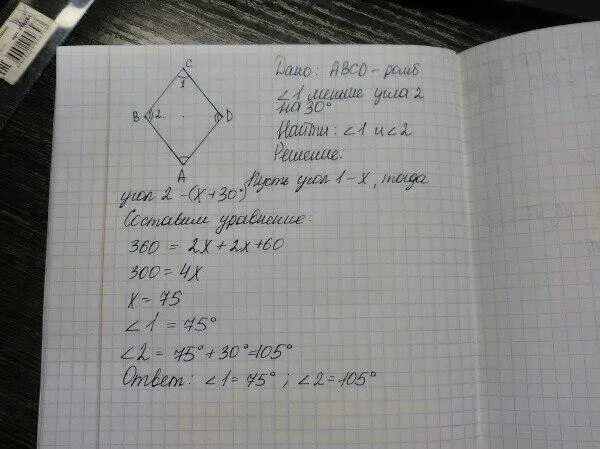 C
1
B 2. D
A
Дано: ABCD - ромб
∠1 меньше угла 2
на 30°
Найти: ∠1 и ∠2
Решение:
Пусть угол 1 - x, тогда
угол 2 - (x+30°)
Составим уравнение:
360 = 2x + 2x + 60
300 = 4x
x = 75
∠1 = 75°
∠2 = 75° + 30° = 105°
Ответ: ∠1 = 75° ; ∠2 = 105°